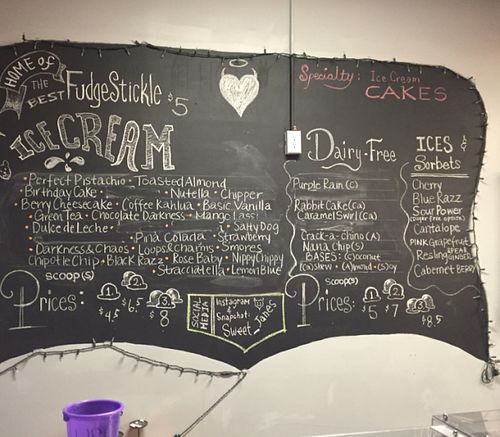 HOME OF
THE
BEST
FudgeStickle $5
ICE CREAM
• Perfect Pistachio • Toasted Almond
• Birthday Cake • Nutella • Chipper
Berry Cheesecake • Coffee Kahlua • Basic Vanilla
• Green Tea • Chocolate Darkness • Mango Lassi
• Dulce de Leche • Salty Dog
• Pina Colada • Strawberry
• Darkness & Chaos • Loops & Charms • Smores
Chipotle Chip • Black Razz • Rose Baby • Nippy Chippy
• Stracciatella • Lemon Blue
SCOOP(S)
Prices:
1 2 3
$4.5 $6.5 $8
SOCIAL MEDIA
Instagram
& Snapchat:
Sweet_Janes
Specialty: Ice Cream
CAKES
Dairy-Free
Purple Rain (C)
Rabbit Cake (Ca)
Caramel Swirl (Ca)
Crack-a-chino (A)
Nana Chip (S)
BASES: (C)oconut
(Ca)shew • (A)lmond • (S)oy
SCOOP(S)
Prices:
1 2 3
$5 $7 $8.5
ICES &
Sorbets
Cherry
Blue Razz
Sour Power
(Sugar Free options)
Cantalope
PINK Grapefruit
Resling
Cabernet BERRY